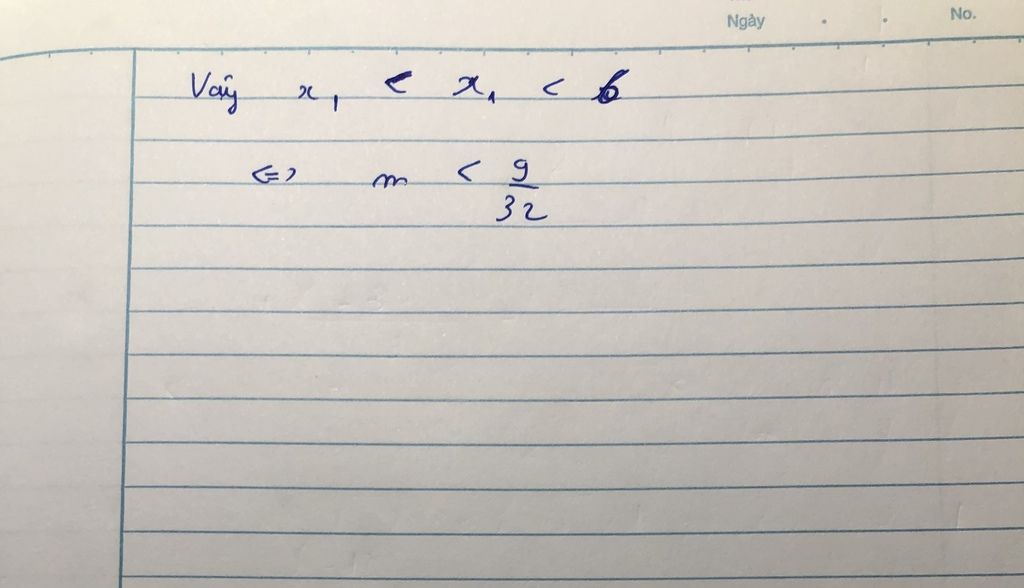 Ngày . . No.
Vậy x₁ < x₁ < 6
<=> m < 9/32